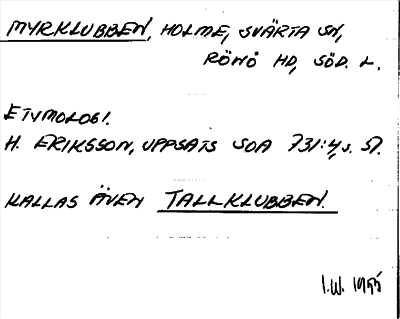 MYRKLUBBEN, HOLME, SVÄRTA SN,
RÖNÖ HD, SÖD. L.
ETYMOLOGI.
H. ERIKSSON, UPPSATS SOA 731:4, s. 57.
KALLAS ÄVEN TALLKLUBBEN.
I.W. 1995